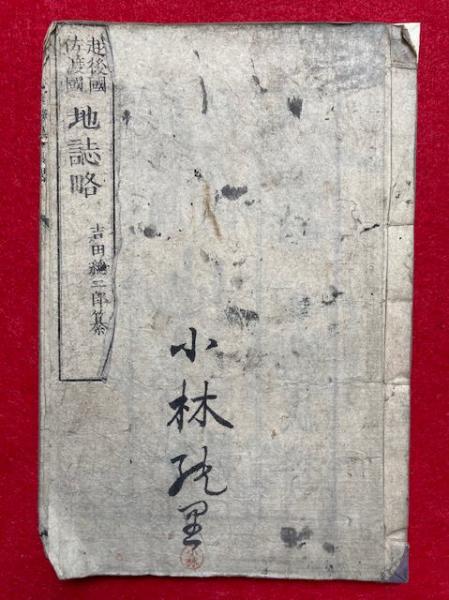 越後國
佐渡國
地誌略
吉田二郎纂
小林
里